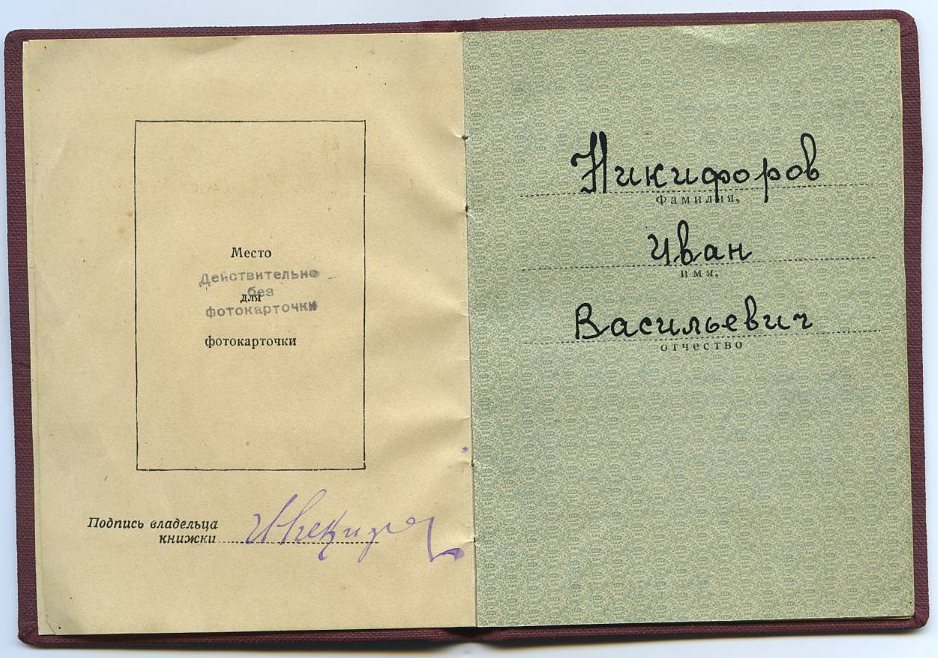 Место
Действительно
для
без
фотокарточки
фотокарточки
Подпись владельца
книжки
Никифоров
фамилия,
Иван
имя,
Васильевич
отчество